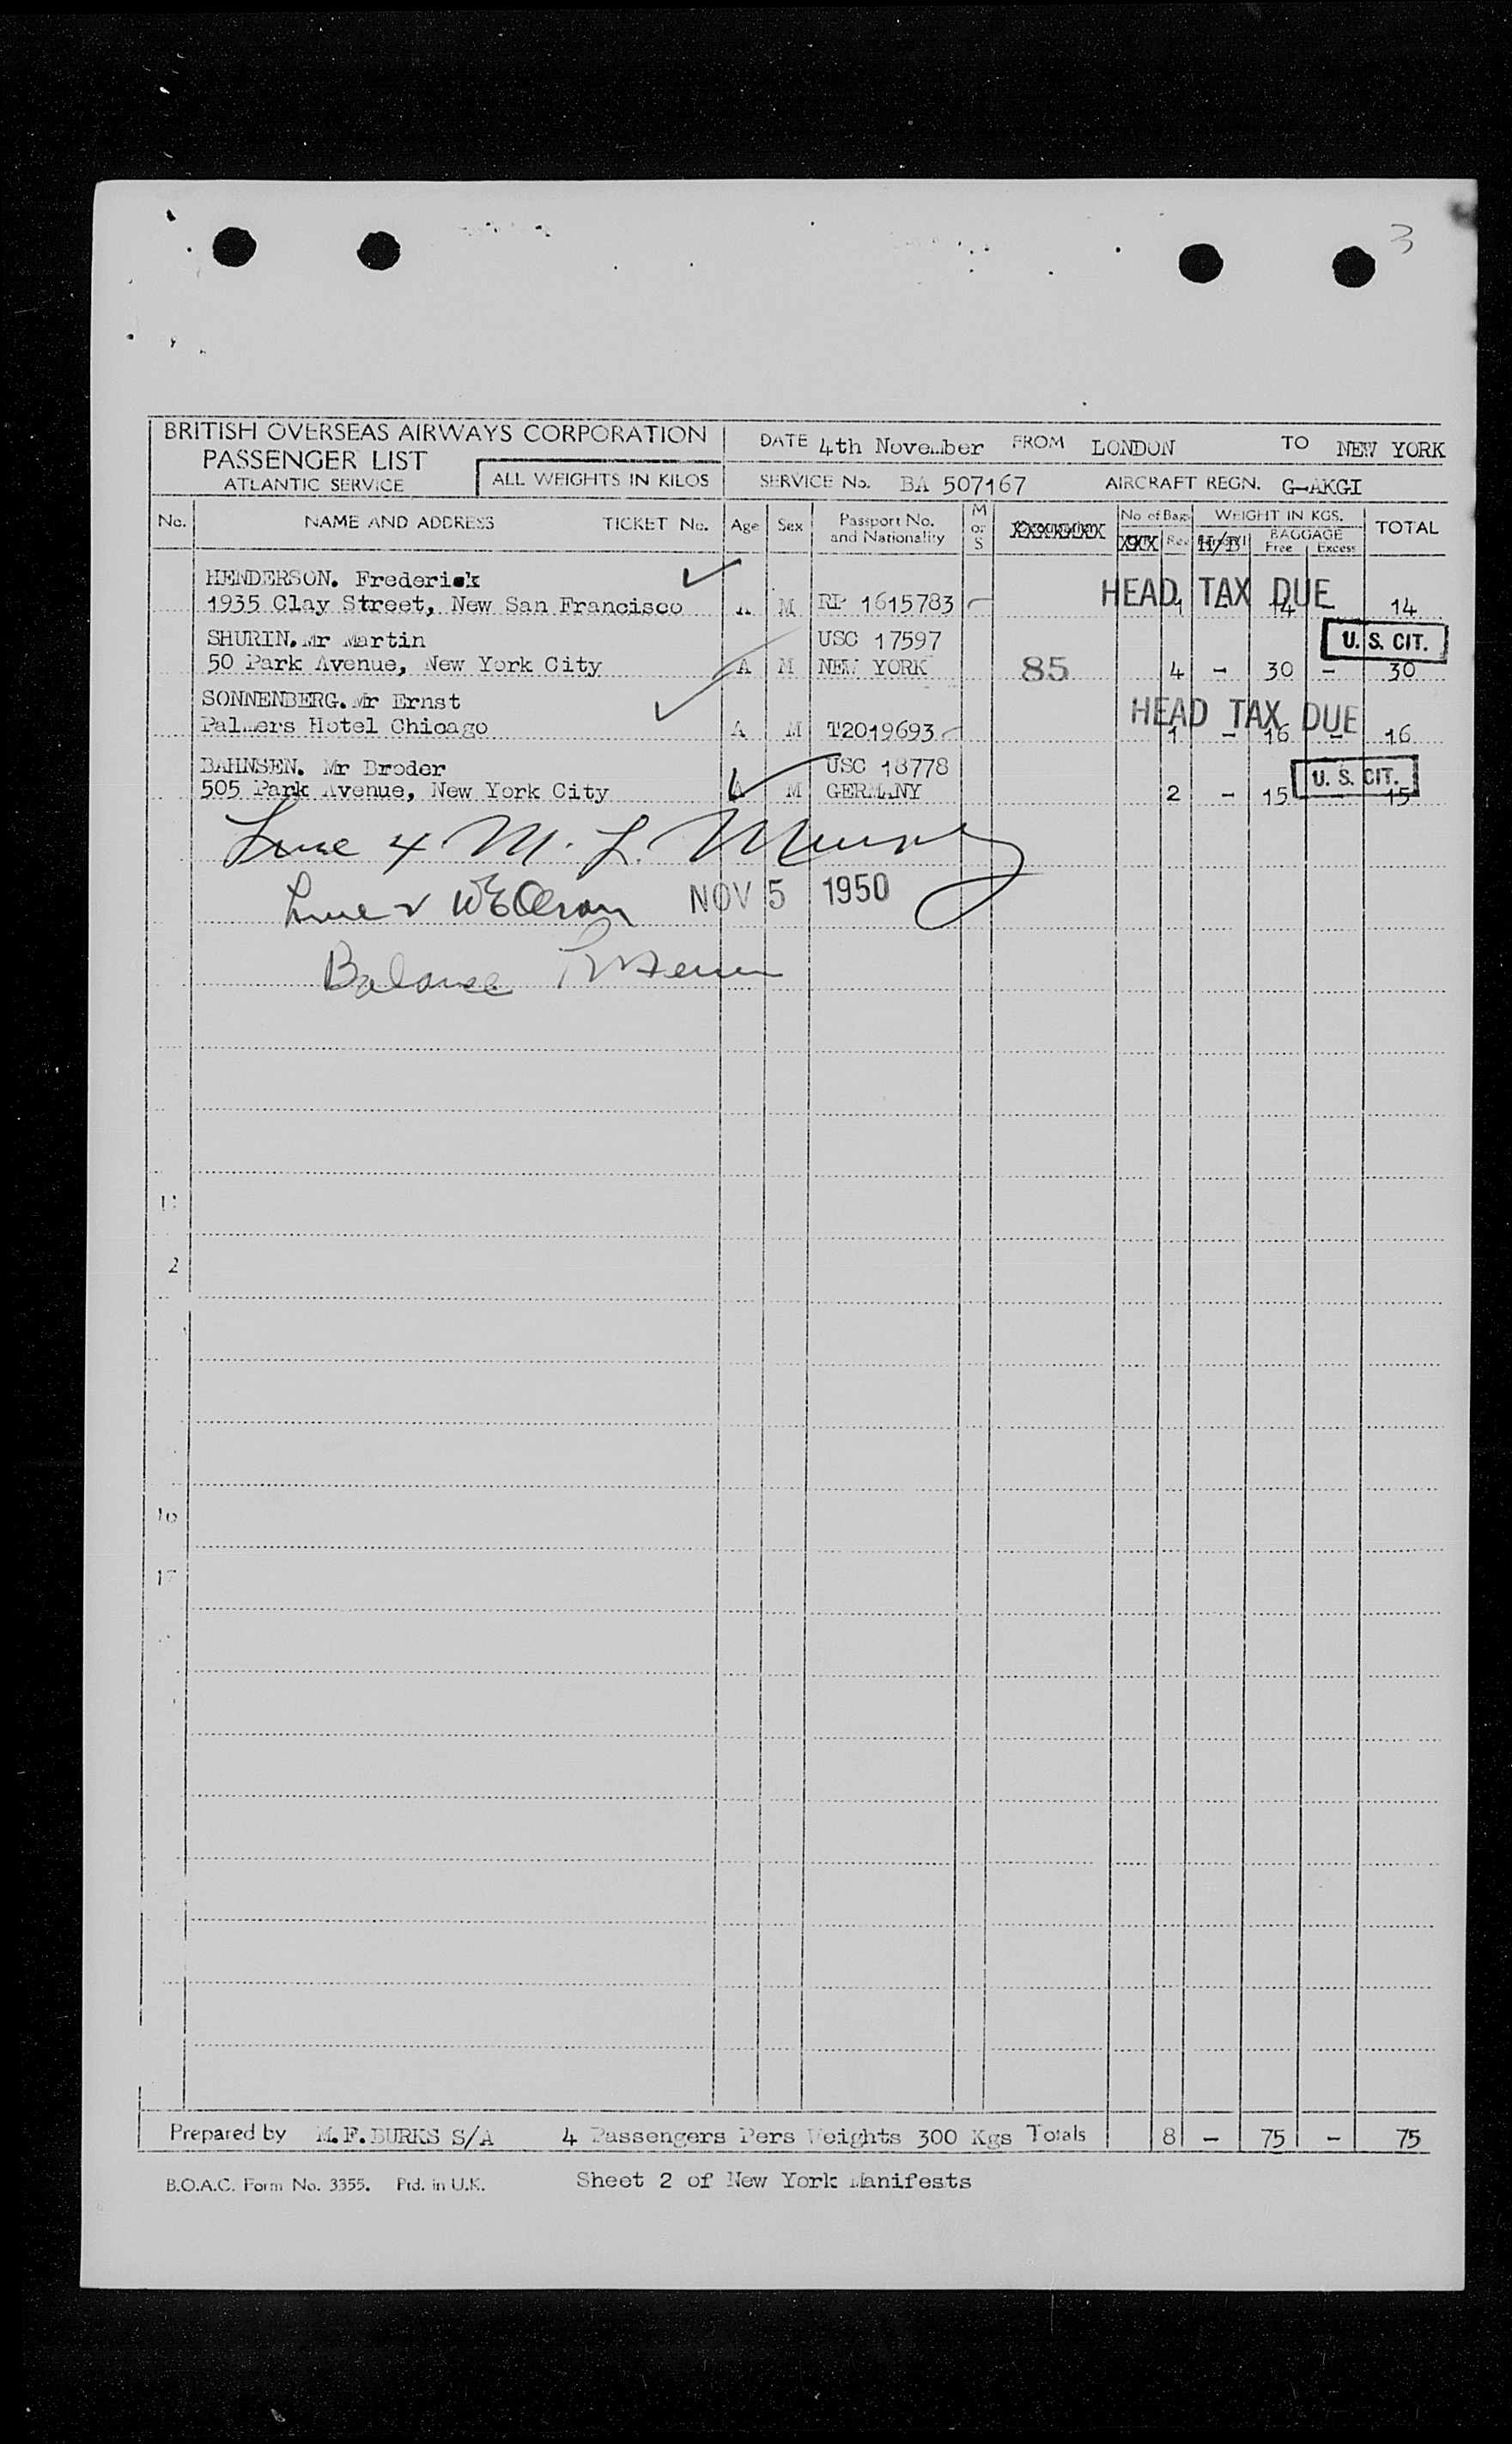 3
BRITISH OVERSEAS AIRWAYS CORPORATION
PASSENGER LIST
ATLANTIC SERVICE
ALL WEIGHTS IN KILOS
DATE 4th November FROM LONDON TO NEW YORK
SERVICE No. BA 507167 AIRCRAFT REGN. G-AKGI
No. NAME AND ADDRESS TICKET No. Age Sex Passport No. and Nationality M or S No of Bags Rec WEIGHT IN KGS. H/B BAGGAGE Free Excess TOTAL
HENDERSON. Frederick HEAD TAX DUE
1935 Clay Street, New San Francisco A M RP 1615783 1 - 14 14
SHURIN. Mr Martin USC 17597 U. S. CIT.
50 Park Avenue, New York City A M NEW YORK 85 4 - 30 - 30
SONNENBERG. Mr Ernst HEAD TAX DUE
Palmers Hotel Chicago A M T2019693 1 - 16 - 16
BAHNSEN. Mr Broder USC 18778 U. S. CIT.
505 Park Avenue, New York City A M GERMANY 2 - 15 15
Line 4 M. L.
Line 2 NOV 5 1950
Balance
11
2
16
17
Prepared by M.F. BURKS S/A 4 Passengers Pers Weights 300 Kgs Totals 8 - 75 - 75
B.O.A.C. Form No. 3355. Ptd. in U.K. Sheet 2 of New York Manifests